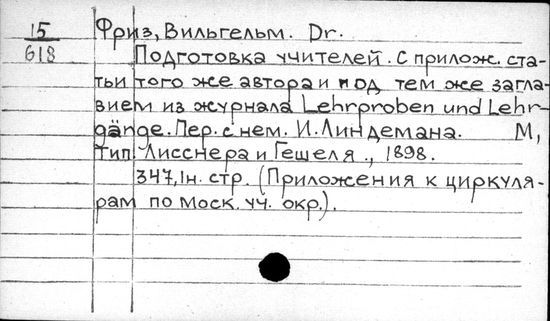 15
618
Фриз, Вильгельм. Dr.
Подготовка учителей. С прилож. ста-
тьи того же автора и под тем же загла-
вием из журнала Lehrproben und Lehr-
gänge. Пер. с нем. И. Линдемана. М,
тип. Лисснера и Гешеля., 1898.
347, 1н. стр. (Приложения к циркуля-
рам по моск. уч. окр.).